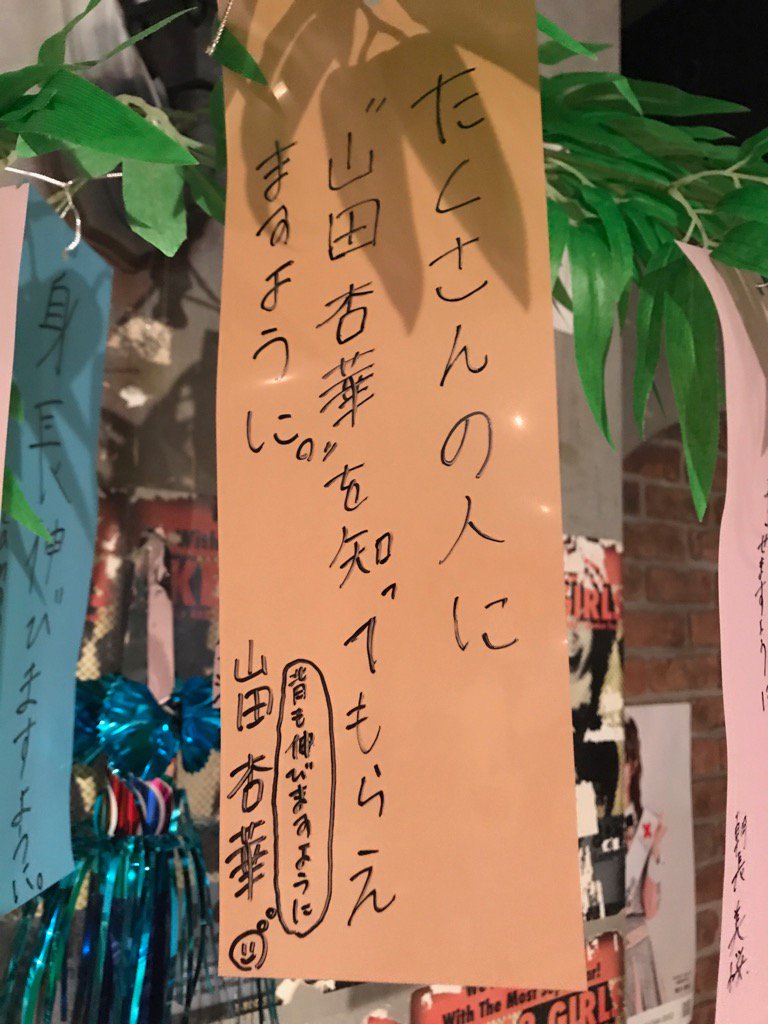 たくさんの人に
"山田杏華"を知ってもらえ
ますように。
背も伸びますように
山田杏華
身長伸びますように。
せますように
With The Most
GIRL